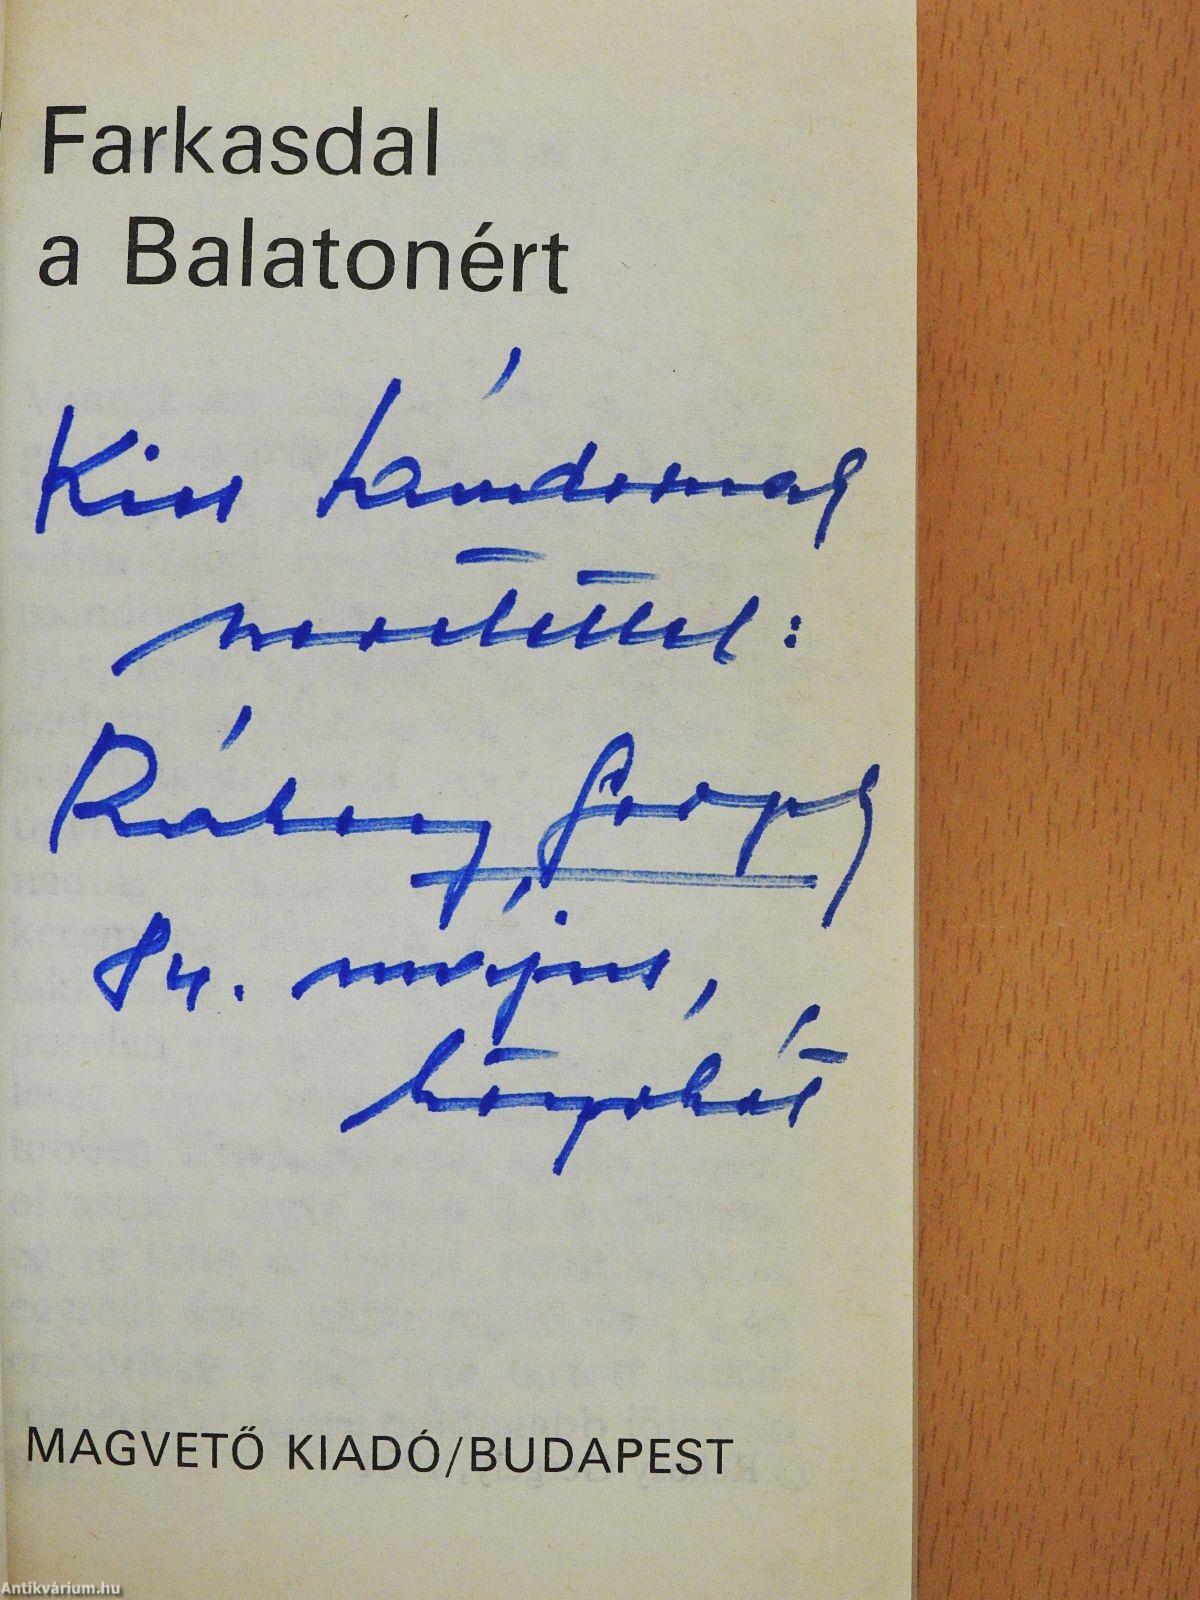 Farkasdal
a Balatonért
Kiss Sándornak
szeretettel:
Rákosy Gergely
84. május,
könyvhét
MAGVETŐ KIADÓ/BUDAPEST
Antikvárium.hu